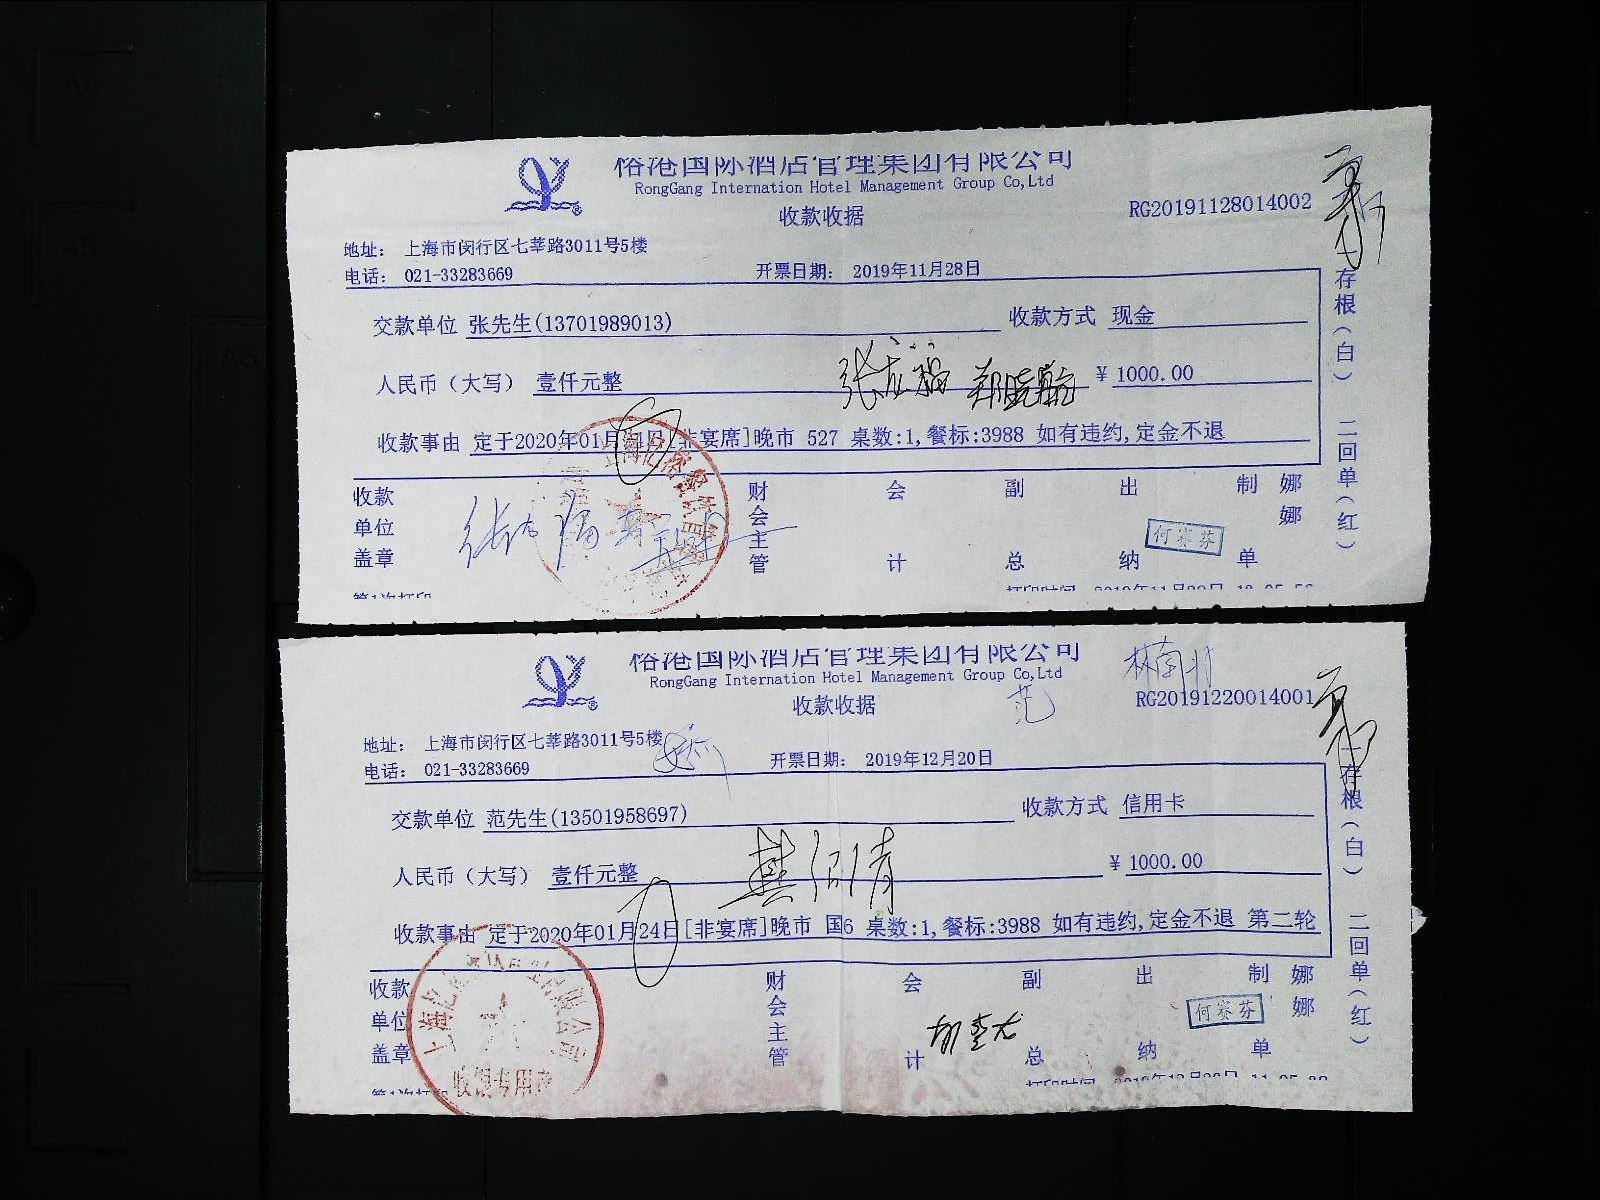 榕港国际酒店管理集团有限公司
RongGang Internation Hotel Management Group Co,Ltd
收款收据
RG20191128014002
地址: 上海市闵行区七莘路3011号5楼
电话: 021-33283669
开票日期: 2019年11月28日
交款单位 张先生(13701989013)
收款方式 现金
人民币（大写） 壹仟元整
¥ 1000.00
收款事由 定于2020年01月24日[非宴席]晚市 527 桌数:1,餐标:3988 如有违约,定金不退
收款单位盖章
财会主管
会计
副总
出纳
何赛芬
制单
娜娜
一存根(白) 二回单(红)
第1次打印
榕港国际酒店管理集团有限公司
RongGang Internation Hotel Management Group Co,Ltd
收款收据
RG20191220014001
范
地址: 上海市闵行区七莘路3011号5楼
电话: 021-33283669
开票日期: 2019年12月20日
交款单位 范先生(13501958697)
收款方式 信用卡
人民币（大写） 壹仟元整
¥ 1000.00
收款事由 定于2020年01月24日[非宴席]晚市 国6 桌数:1,餐标:3988 如有违约,定金不退 第二轮
收款单位盖章
财会主管
会计
副总
出纳
何赛芬
制单
娜娜
一存根(白) 二回单(红)
第1次打印